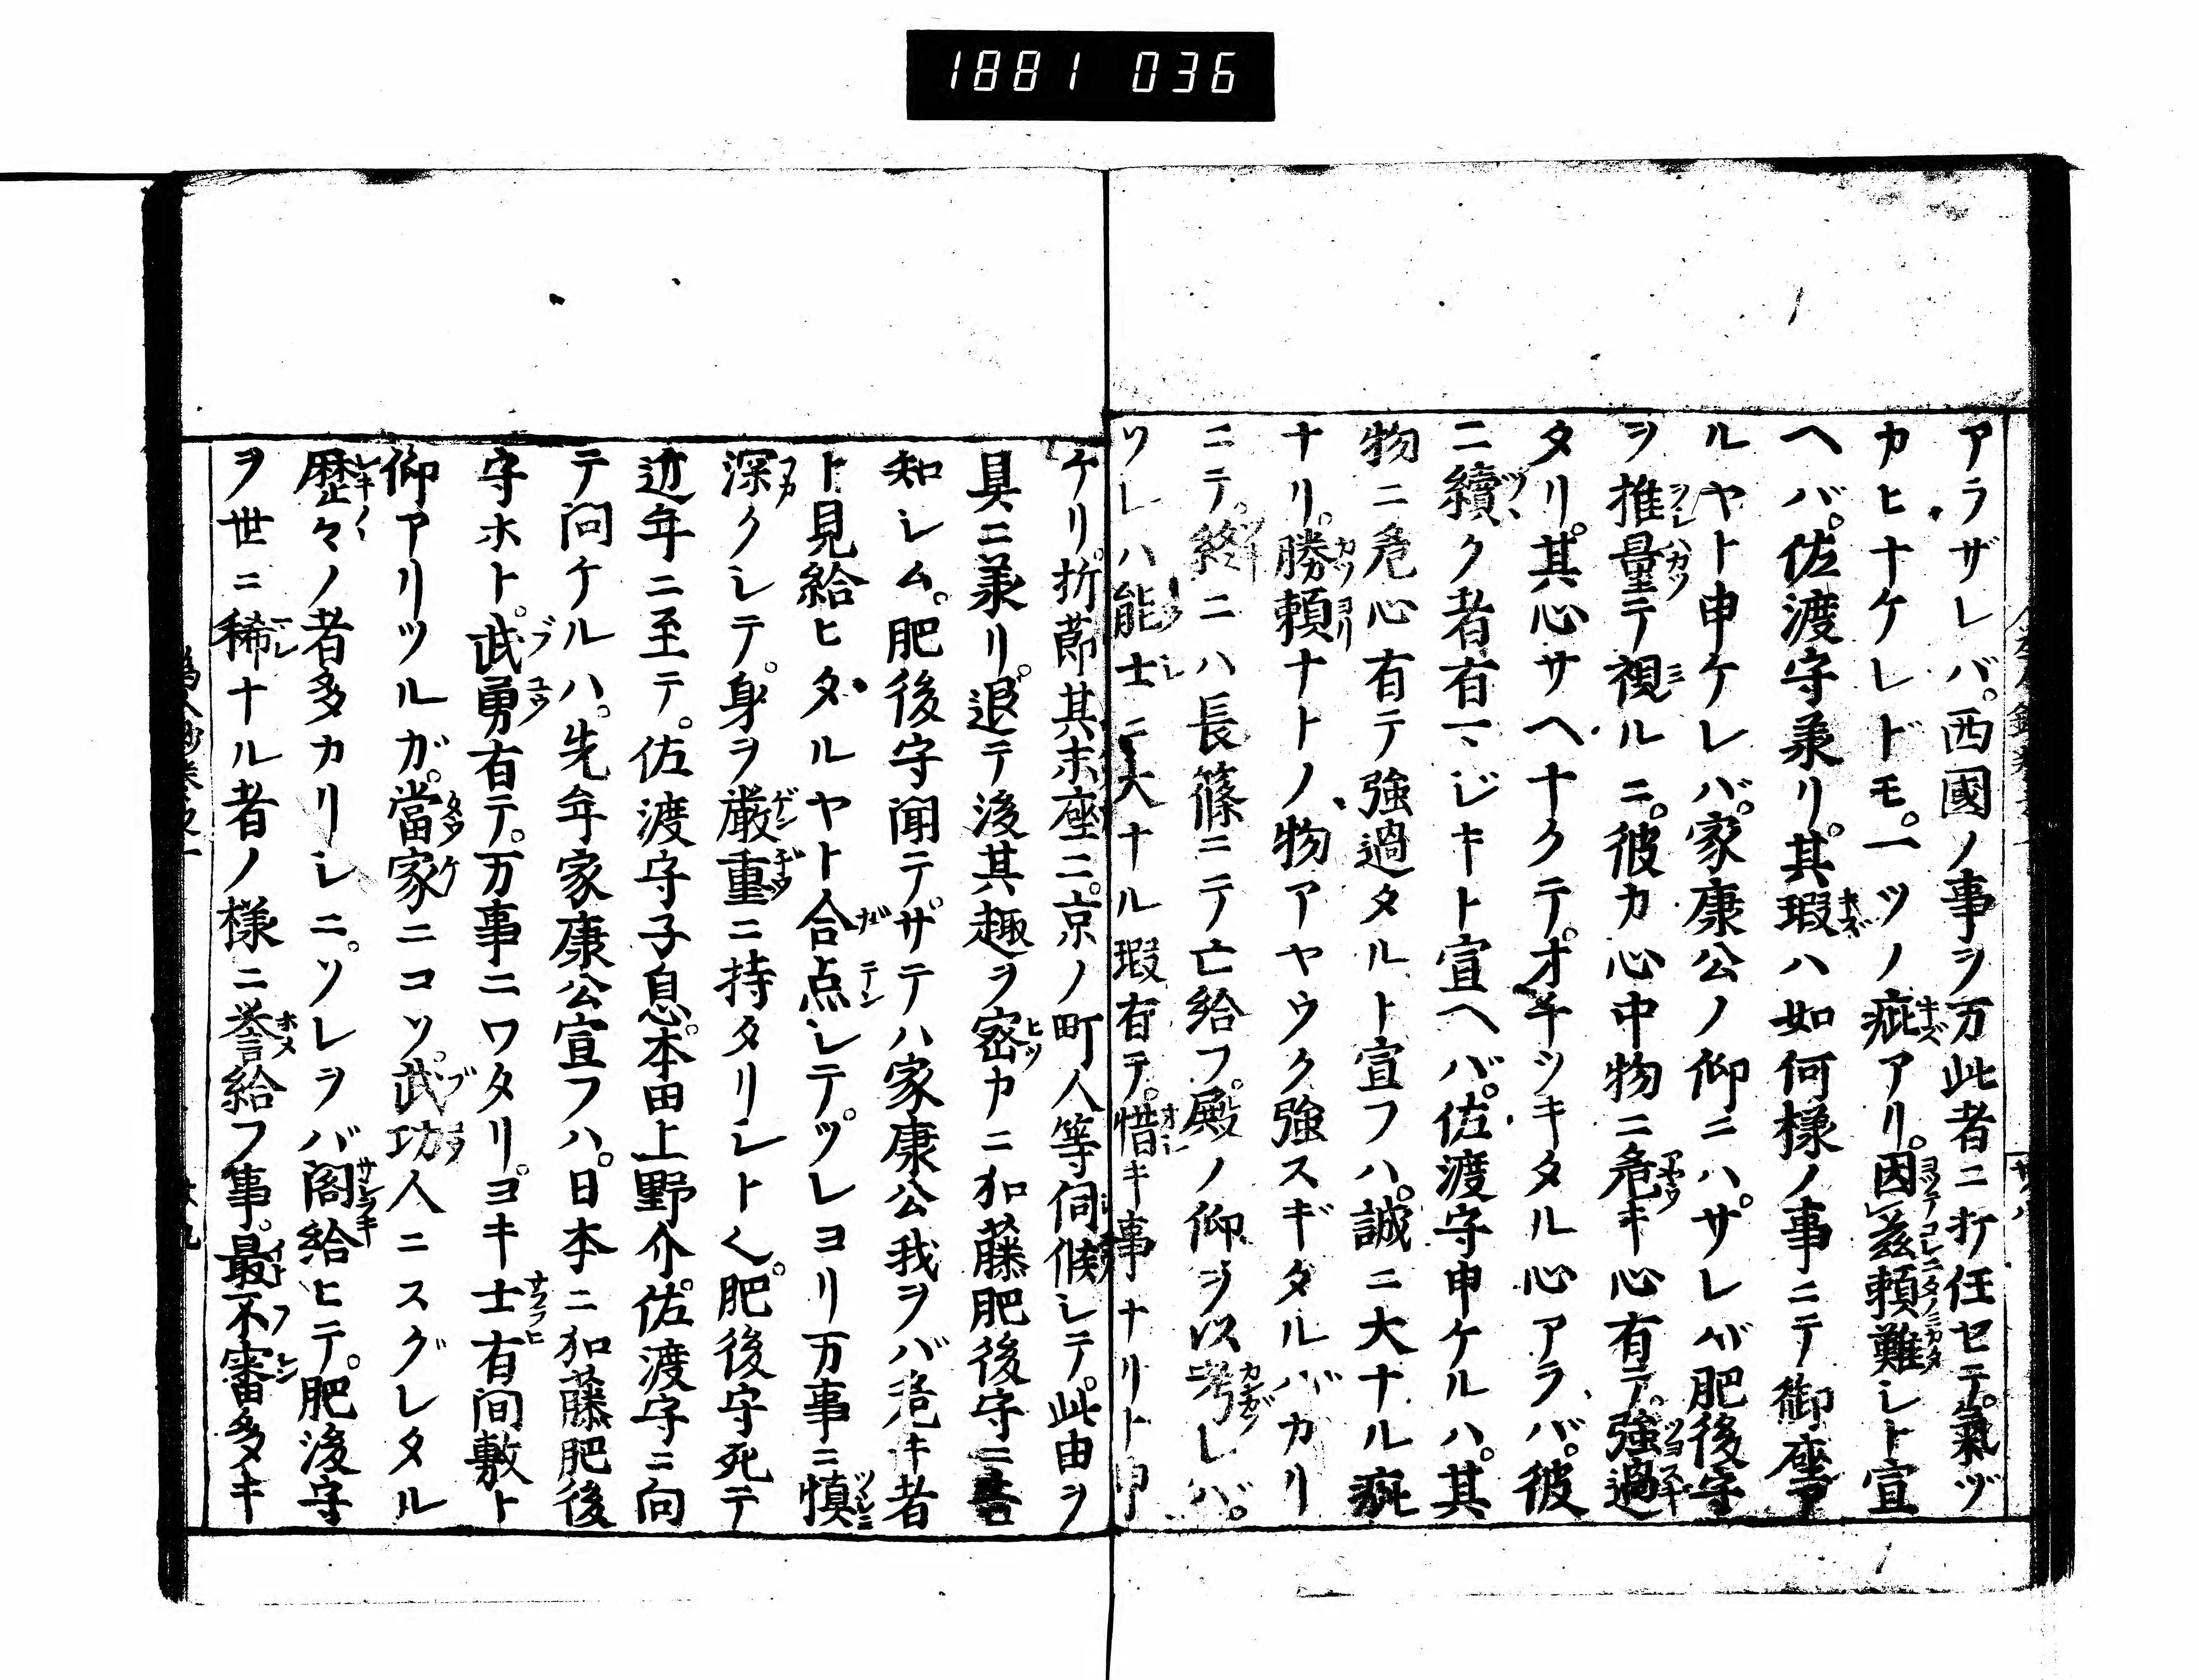 1881 036
アラザレバ。西國ノ事ヲ万此者ニ打任セテ。氣ヅ
カヒナケレドモ。一ツノ疵アリ。因茲頼難シト宣
ヘバ。佐渡守兼リ。其瑕ハ如何様ノ事ニテ御座
ルヤト申ケレバ。家康公ノ仰ニハ。サレバ肥後守
ヲ推量テ視ルニ。彼カ心中物ニ危キ心有テ。強過
タリ。其心サヘナクテ。オチツキタル心アラバ。彼
ニ續ク者有マジキト宣ヘバ。佐渡守申ケルハ。其
物ニ危心有テ強過タルト宣フハ。誠ニ大ナル疵
ナリ。勝頼ナトノ物アヤウク強スギタルバカリ
ニテ。終ニハ長篠ニテ亡給フ。殿ノ仰ヲ以考レバ。
ソレハ能士ニ大ナル瑕有テ。惜キ事ナリト申
ケリ。折節其末座ニ。京ノ町人等伺候シテ。此由ヲ
具ニ承リ。退テ後其趣ヲ密カニ加藤肥後守ニ告
知レム。肥後守聞テ。サテハ家康公我ヲバ危キ者
ト見給ヒタルヤト合点シテ。ソレヨリ万事ニ慎
深クシテ。身ヲ厳重ニ持タリシトく。肥後守死テ
近年ニ至テ。佐渡守子息。本田上野介。佐渡守ニ向
テ問ケルハ。先年家康公宣フハ。日本ニ加藤肥後
守ホト。武勇有テ。万事ニワタリ。ヨキ士有間敷ト
仰アリツルガ。當家ニコソ。武功人ニスグレタル
歴々ノ者多カリシニ。ソレヲバ閣給ヒテ。肥後守
ヲ世ニ稀ナル者ノ様ニ誉給フ事。最不審多キ